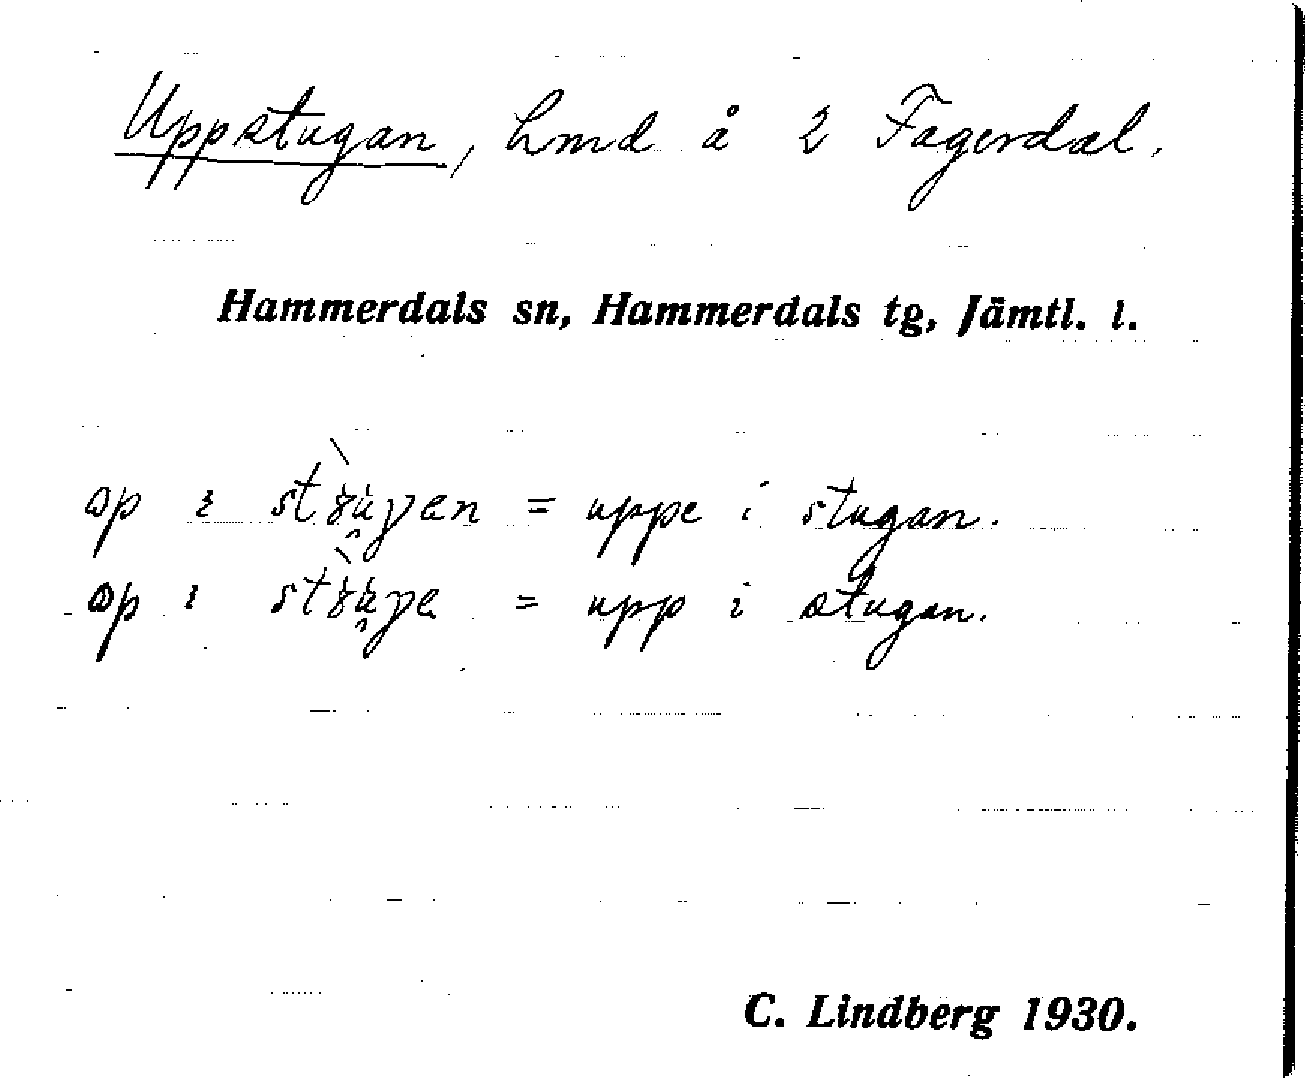 Uppstugan, hmd å 2 Fagerdal.
Hammerdals sn, Hammerdals tg, Jämtl. l.
op i = uppe i stugan.
op i = upp i stugan.
C. Lindberg 1930.